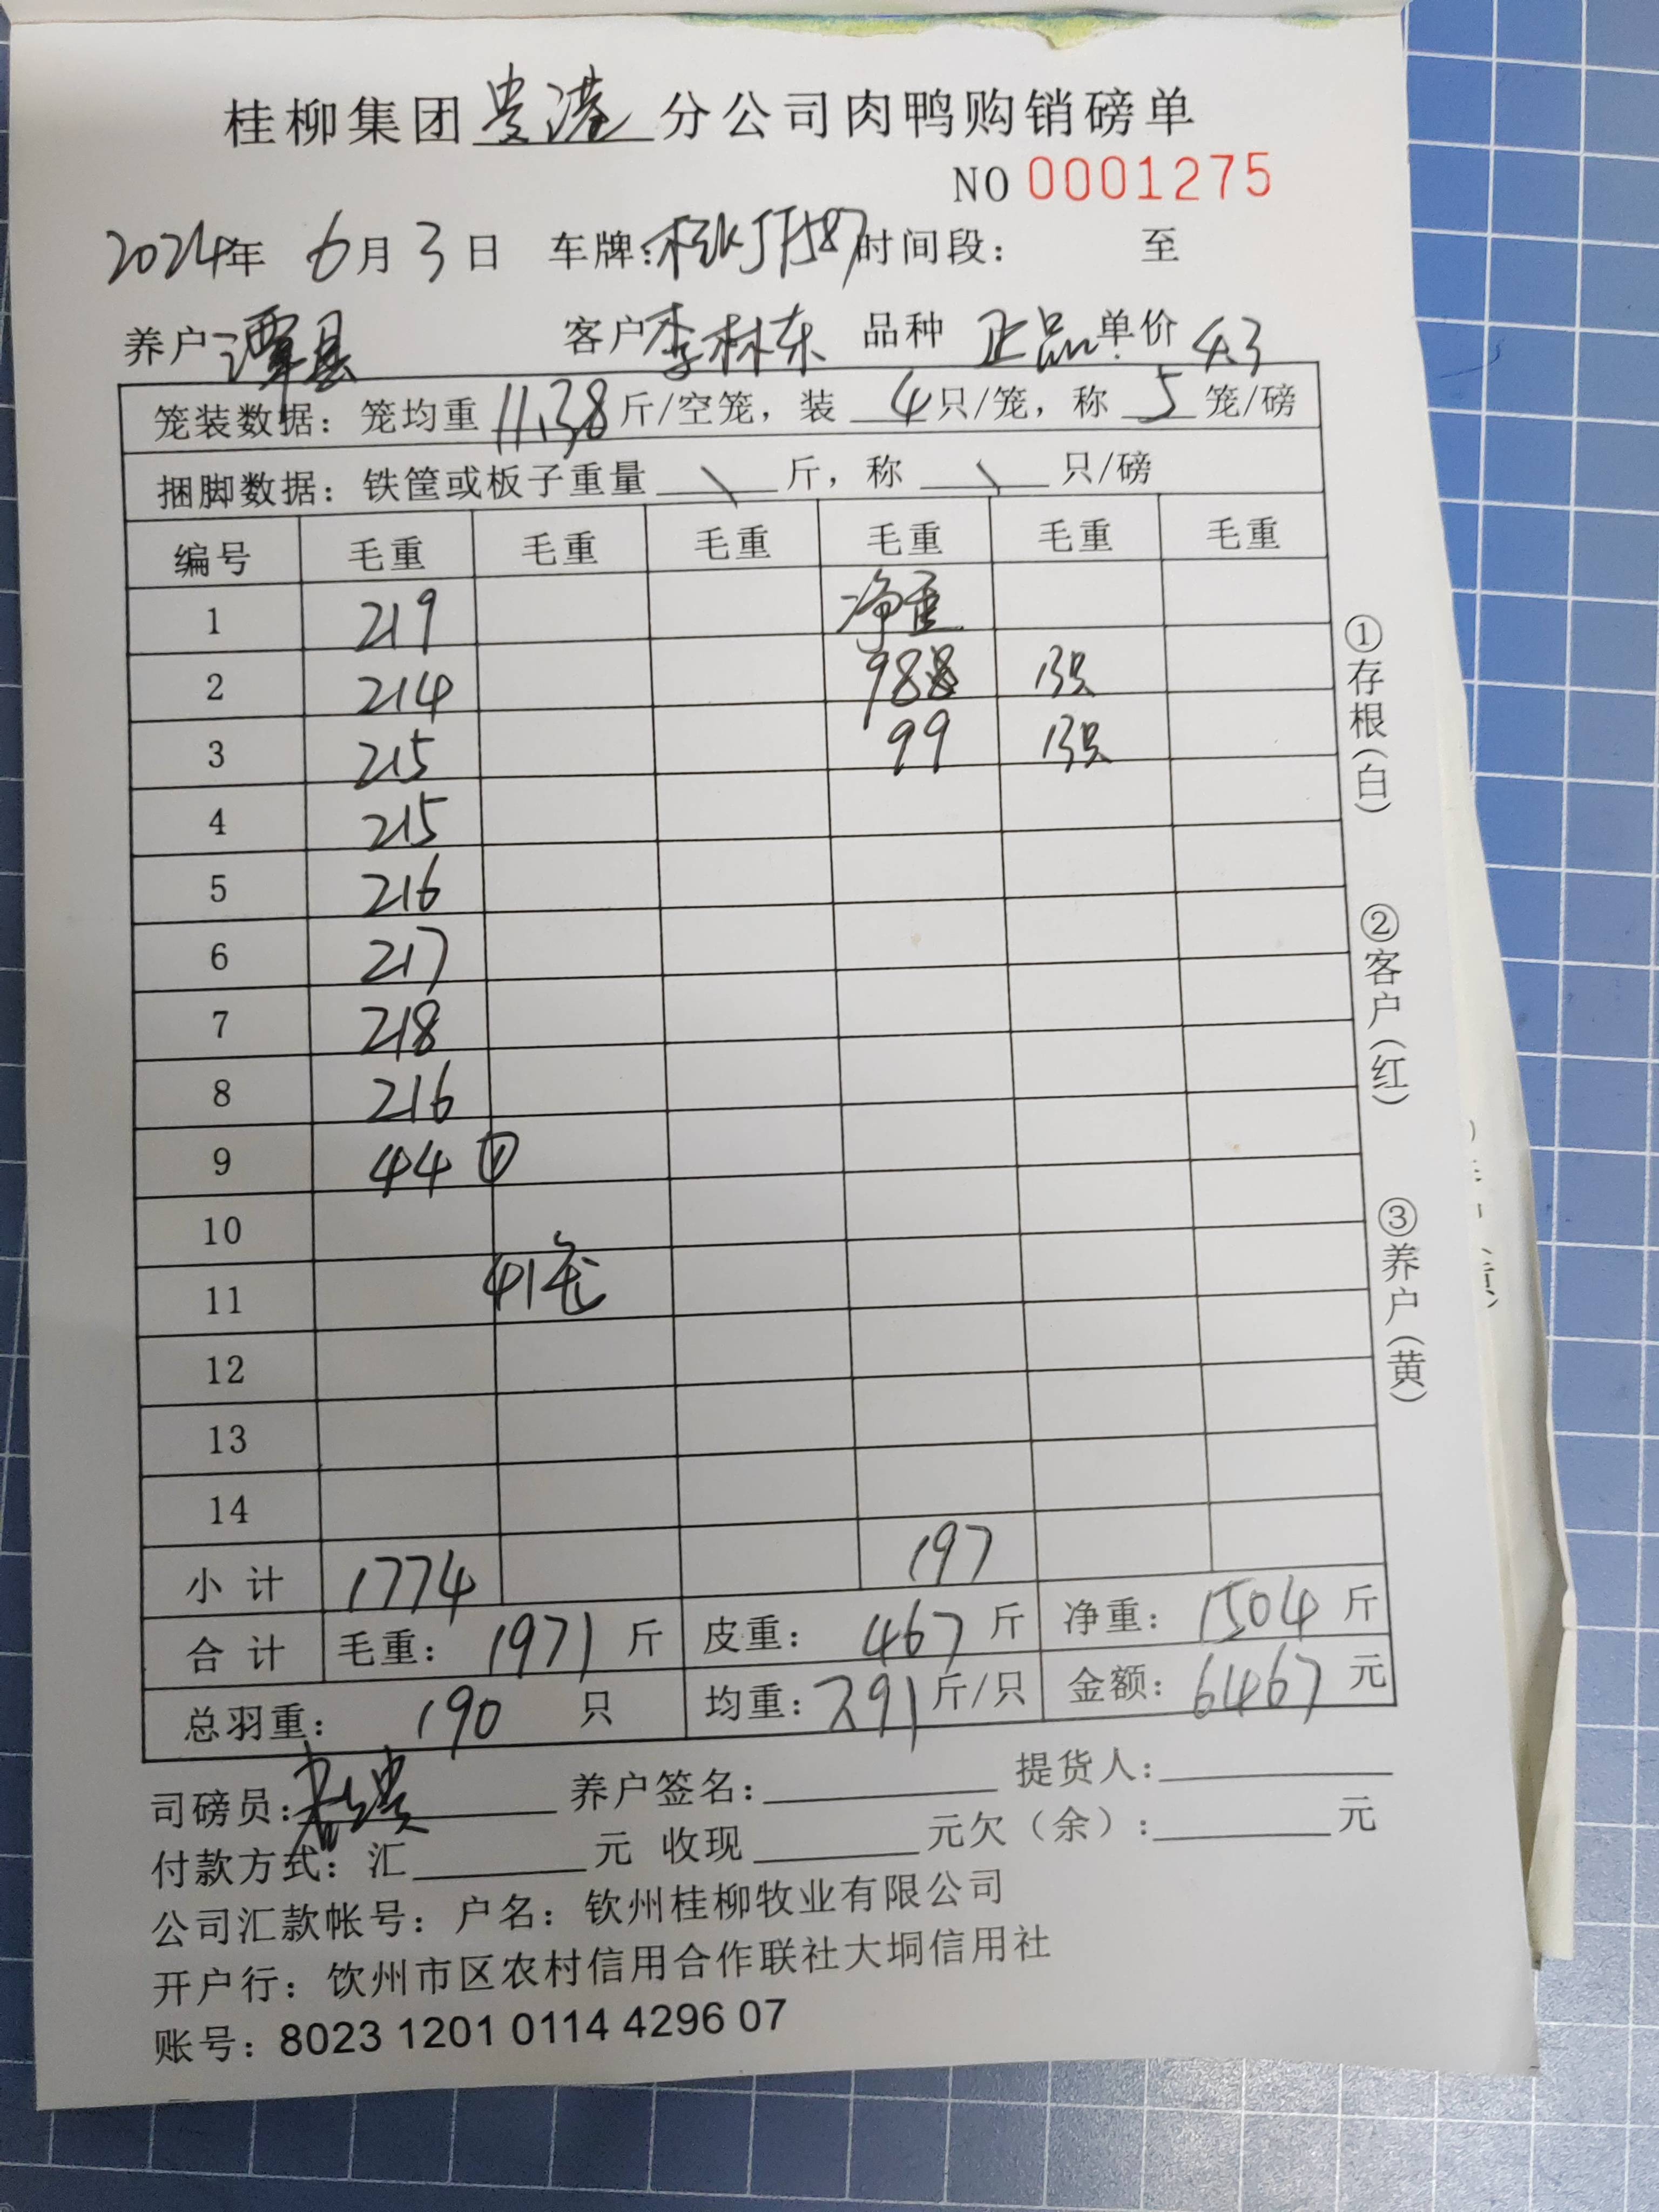 桂柳集团贵港分公司肉鸭购销磅单
NO 0001275
2024年 6月 3日 车牌: 时间段: 至
养户 谭县 客户 李林东 品种 正品 单价 4.3
笼装数据: 笼均重 11.38 斤/空笼, 装 4 只/笼, 称 5 笼/磅
捆脚数据: 铁筐或板子重量 \ 斤, 称 \ 只/磅
编号 毛重 毛重 毛重 毛重 毛重 毛重
1 219 净重
2 214 98 13只
3 215 99 13只
4 215
5 216
6 217
7 218
8 216
9 44 ①
10
11 41笼
12
13
14
小计 1774 197
合计 毛重: 1971 斤 皮重: 467 斤 净重: 1504 斤
总羽重: 190 只 均重: 7.91 斤/只 金额: 6467 元
司磅员: 养户签名: 提货人:
付款方式: 汇 元 收现 元欠(余): 元
公司汇款帐号: 户名: 钦州桂柳牧业有限公司
开户行: 饮州市区农村信用合作联社大垌信用社
账号: 8023 1201 0114 4296 07
①存根(白)
②客户(红)
③养户(黄)